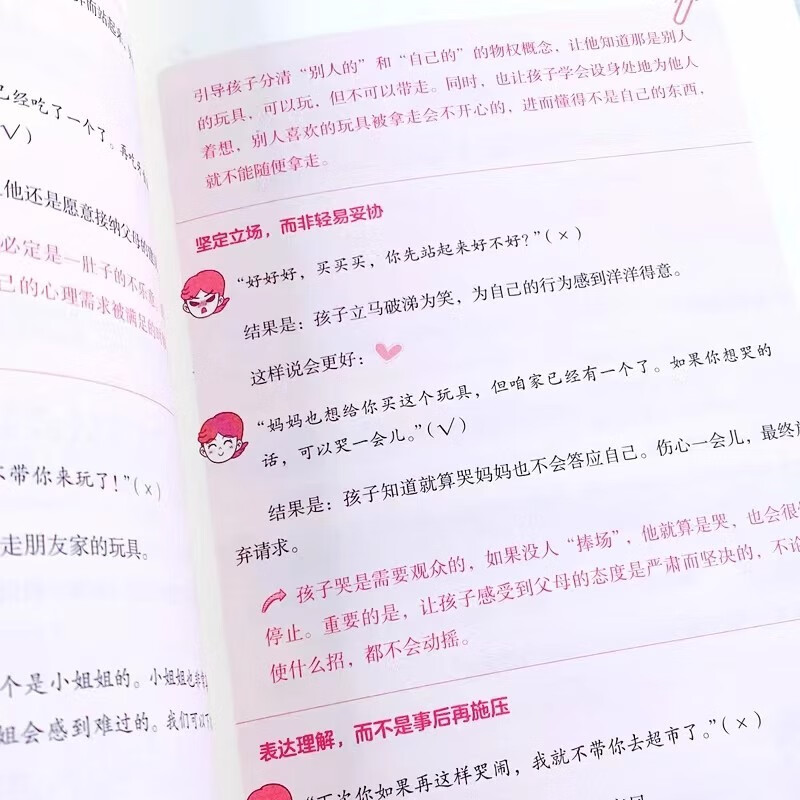 已经吃了一个了。再吃
√)
他还是愿意接纳父母的
必定是一肚子的不乐意
己的心理需求被满足的
不带你来玩了!”(×)
走朋友家的玩具。
个是小姐姐的。小姐姐也
姐会感到难过的。我们可以
引导孩子分清“别人的”和“自己的”的物权概念,让他知道那是别人
的玩具,可以玩,但不可以带走。同时,也让孩子学会设身处地为他人
着想,别人喜欢的玩具被拿走会不开心的,进而懂得不是自己的东西,
就不能随便拿走。
坚定立场,而非轻易妥协
“好好好,买买买,你先站起来好不好?”(×)
结果是:孩子立马破涕为笑,为自己的行为感到洋洋得意。
这样说会更好:
“妈妈也想给你买这个玩具,但咱家已经有一个了。如果你想哭的
话,可以哭一会儿。”(√)
结果是:孩子知道就算哭妈妈也不会答应自己。伤心一会儿,最终
弃请求。
孩子哭是需要观众的,如果没人“捧场”,他就算是哭,也会很
停止。重要的是,让孩子感受到父母的态度是严肃而坚决的,不论
使什么招,都不会动摇。
表达理解,而不是事后再施压
“下次你如果再这样哭闹,我就不带你去超市了。”(×)